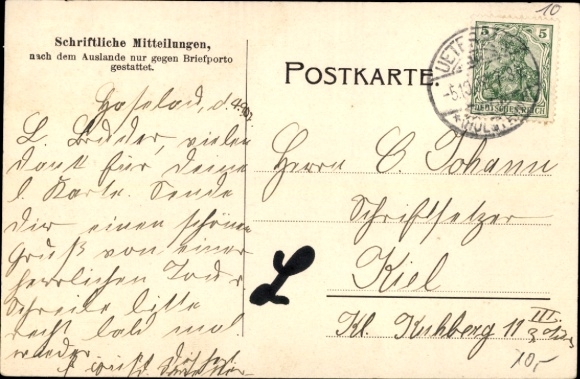 10
Schriftliche Mitteilungen,
nach dem Auslande nur gegen Briefporto
gestattet.
POSTKARTE
5 5
DEUTSCHES REICH
UETE
HOLST
Haselau, d.
L. Bruder, vielen
Dank für Deine
l. Karte. Sende
Dir einen schönen
Gruß von einer
herrlichen Tour.
Schreibe bitte
recht bald mal
wieder.
Herrn C. Johann
Schriftsetzer
Kiel
Kl. Kuhberg 11 III.
10,-